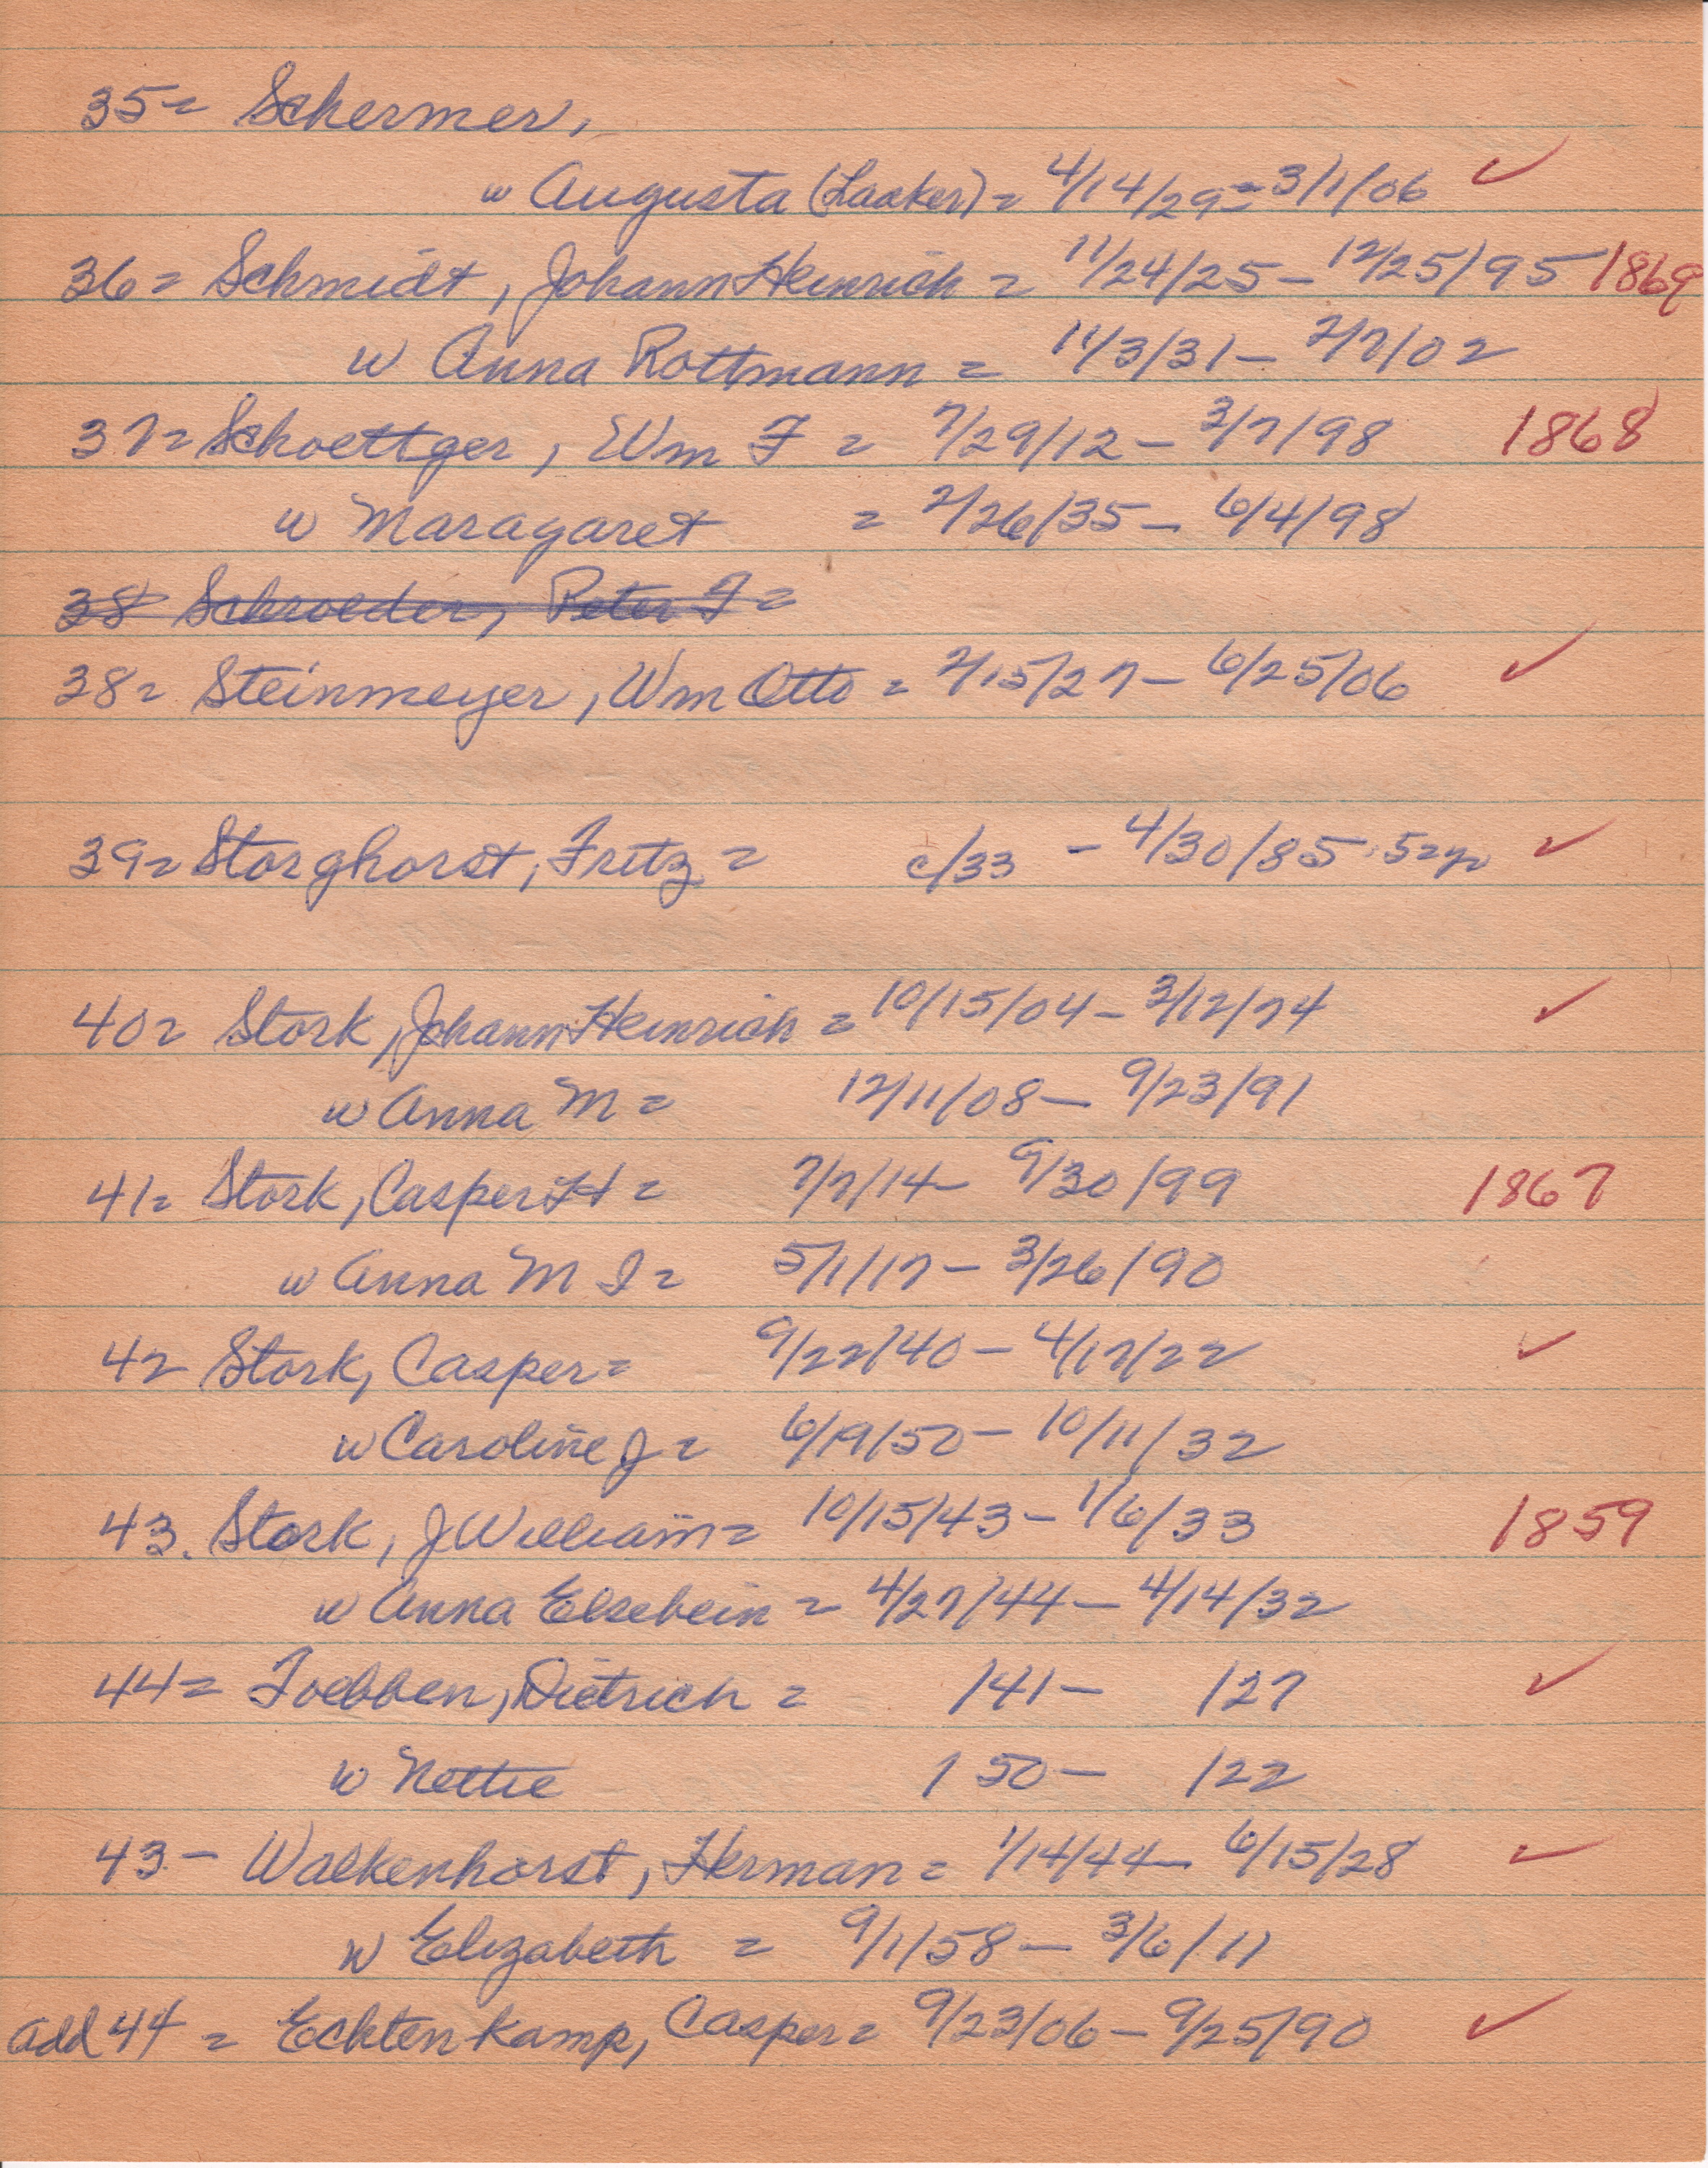 35= Schermer,
w Augusta (Laaker) = 4/14/29 = 3/1/06 ✓
36= Schmidt, Johann Heinrich = 11/24/25 – 12/25/95 1869
w Anna Rottmann = 11/3/31 – 2/7/02
37= Schoettger, Wm F = 7/29/12 – 3/7/98 1868
w Maragaret = 2/26/35 – 6/4/98
38 Schroeder, Peter F =
38= Steinmeyer, Wm Otto = 2/15/27 – 6/25/06 ✓
39= Storghorst, Fritz = c/33 – 4/30/85 52yr ✓
40= Stork, Johann Heinrich = 10/15/04 – 3/12/74 ✓
w Anna M = 12/11/08 – 9/23/91
41= Stork, Casper H = 7/7/14 – 9/30/99 1867
w Anna M I = 5/1/17 – 3/26/90
42 Stork, Casper = 9/22/40 – 4/17/22 ✓
w Caroline J = 6/19/50 – 10/11/32
43. Stork, J William = 10/15/43 – 1/6/33 1859
w Anna Elsebein = 4/27/44 – 4/14/32
44= Toebben, Dietrich = /41 – /27 ✓
w Nettie /50 – /22
43 – Walkenhorst, Herman = 1/14/44 – 6/15/28 ✓
w Elizabeth = 9/1/58 – 3/6/11
add 44 = Echtenkamp, Casper = 9/23/06 – 9/25/90 ✓